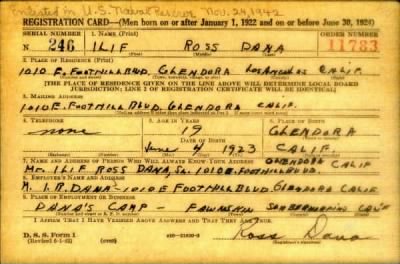 Enlisted in U.S. Naval Reserve Nov. 24, 1942
REGISTRATION CARD—(Men born on or after January 1, 1922 and on or before June 30, 1924)
SERIAL NUMBER 1. NAME (Print) ORDER NUMBER
N 246 ILIF ROSS DANA 11783
(First) (Middle) (Last)
2. PLACE OF RESIDENCE (Print)
1010 E. FOOTHILL BLVD. GLENDORA LOS ANGELES CALIF.
[THE PLACE OF RESIDENCE GIVEN ON THE LINE ABOVE WILL DETERMINE LOCAL BOARD
JURISDICTION; LINE 2 OF REGISTRATION CERTIFICATE WILL BE IDENTICAL]
3. MAILING ADDRESS
1010 E. FOOTHILL BLVD. GLENDORA CALIF.
4. TELEPHONE 5. AGE IN YEARS 6. PLACE OF BIRTH
none 19 GLENDORA
DATE OF BIRTH
JUNE 4 1923 CALIF.
7. NAME AND ADDRESS OF PERSON WHO WILL ALWAYS KNOW YOUR ADDRESS GLENDORA CALIF
Mr. ILIF ROSS DANA, Sr. 1010 E. FOOTHILL BLVD.
8. EMPLOYER'S NAME AND ADDRESS
M. I. R. DANA - 1010 E FOOTHILL BLVD GLENDORA CALIF
9. PLACE OF EMPLOYMENT OR BUSINESS
DANA'S CAMP - FAWNSKIN SAN BERNARDINO CALIF
I AFFIRM THAT I HAVE VERIFIED ABOVE ANSWERS AND THAT THEY ARE TRUE.
D. S. S. Form 1
(Revised 6-1-42) Ross Dana
(Registrant's signature)